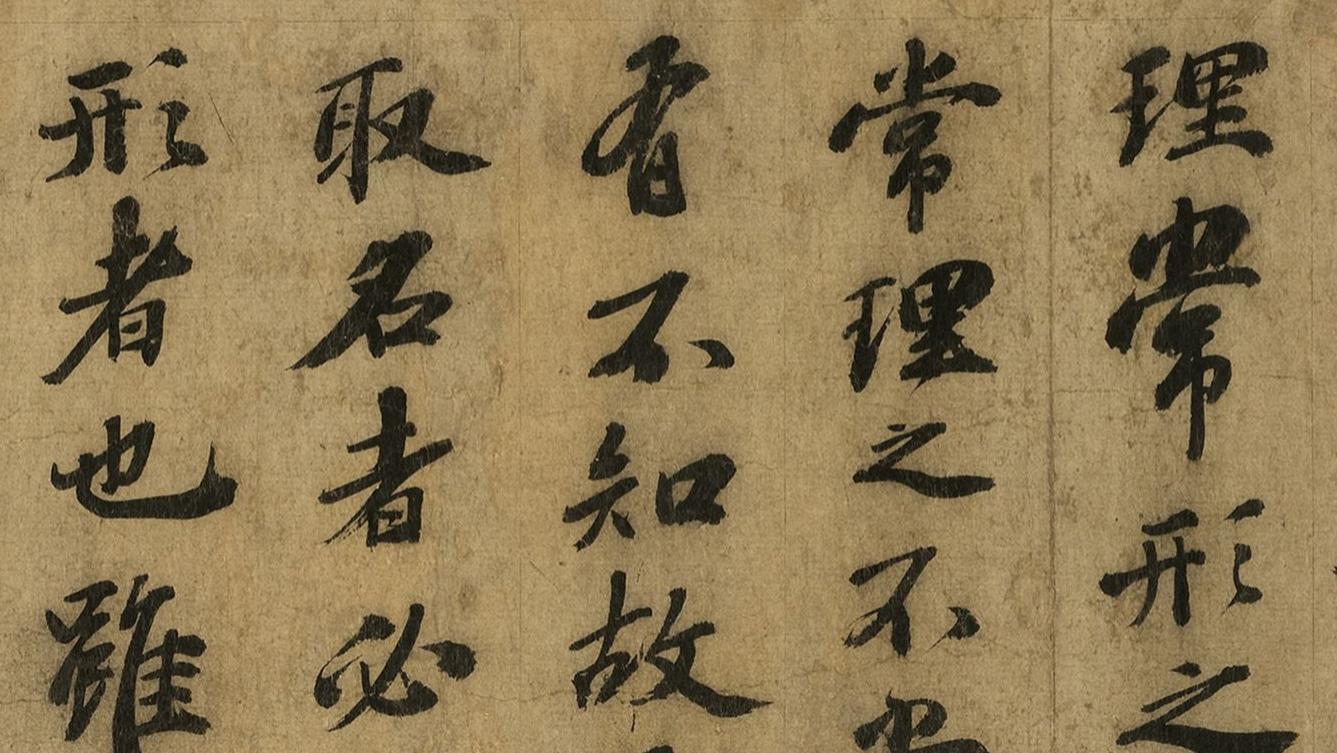 理常形之
常理之不
有不知故
取名者必
形者也雖